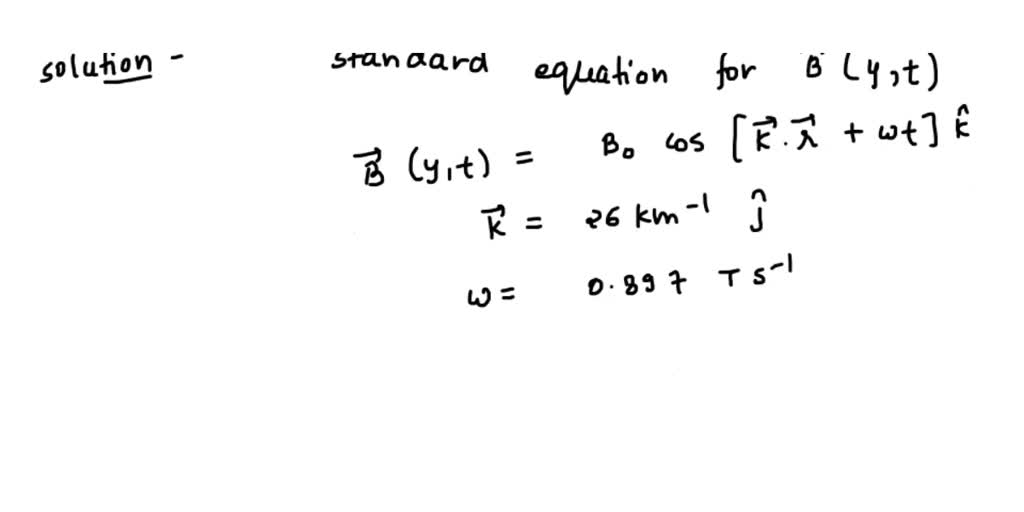 solution - standard equation for B (y,t)
B⃗ (y,t) = B₀ cos [k⃗.r⃗ + ωt] k̂
k⃗ = 26 km⁻¹ ĵ
ω = 0.897 T s⁻¹